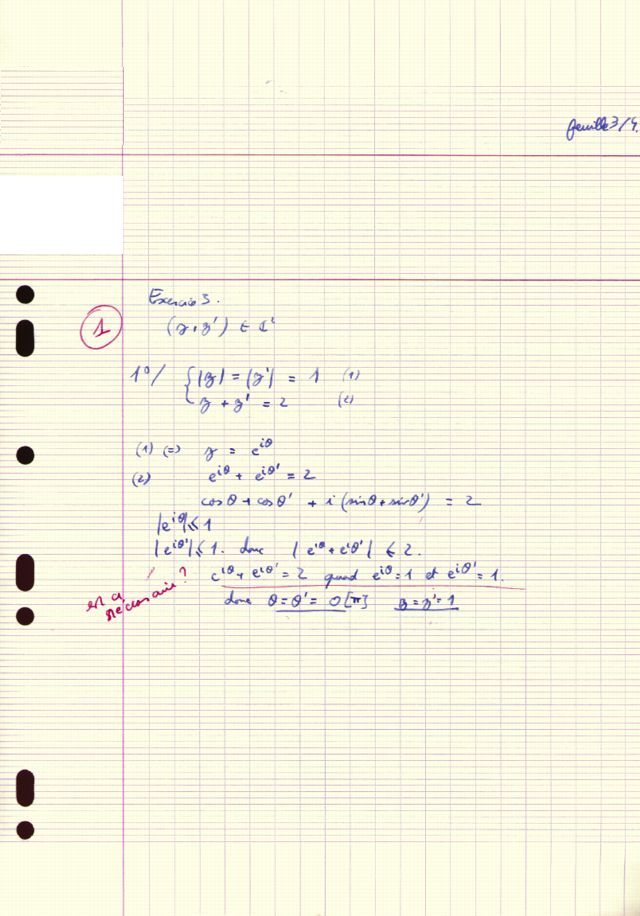 feuille 3/4.
Exercice 3.
1
(z, z') ∈ ℂ²
1°/ { |z| = |z'| = 1 (1)
z + z' = 2 (2)
(1) (=) z = e^{iθ}
(2) e^{iθ} + e^{iθ'} = 2
cosθ + cosθ' + i (sinθ + sinθ') = 2
|e^{iθ}| ≤ 1
|e^{iθ'}| ≤ 1. donc | e^{iθ} + e^{iθ'} | ≤ 2.
e^{iθ} + e^{iθ'} = 2 quand e^{iθ} = 1 et e^{iθ'} = 1.
est ce nécessaire ?
donc θ = θ' = 0 [π] z = z' = 1